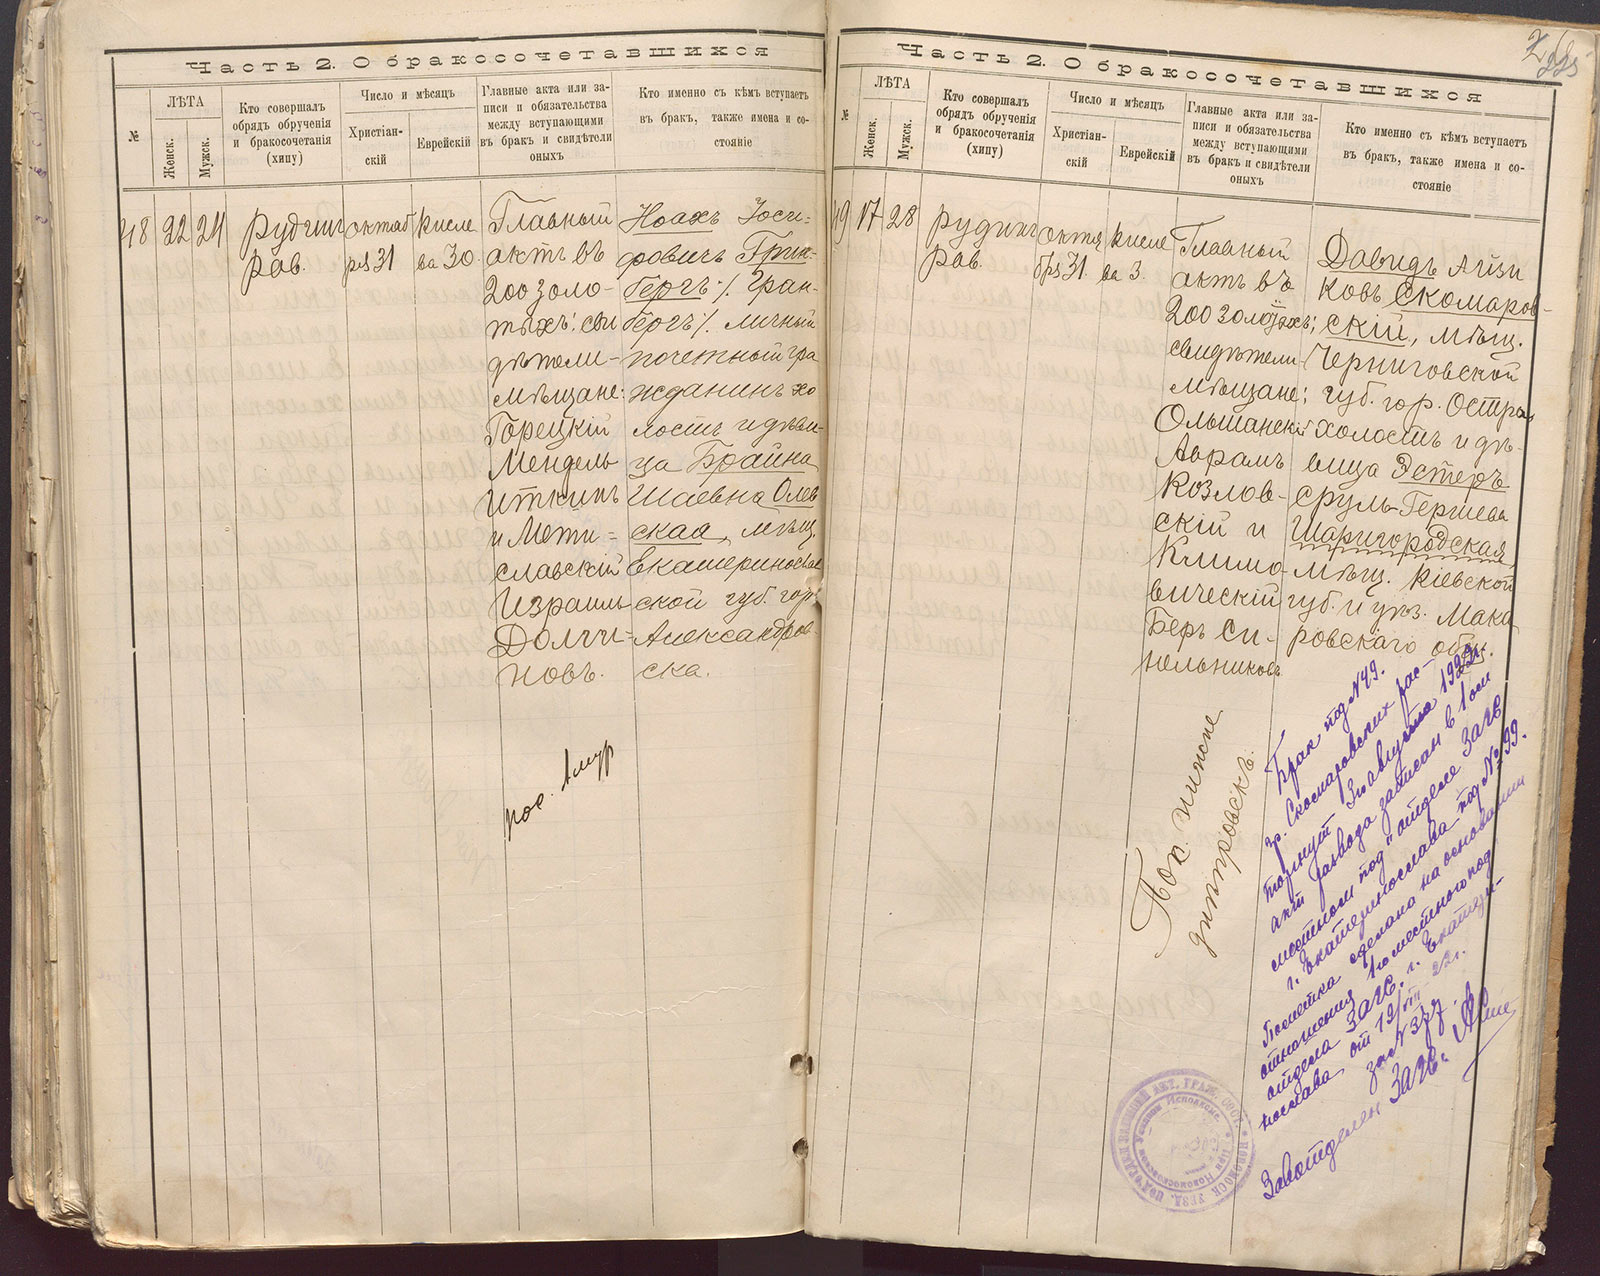 Часть 2. О бракосочетавшихся
№
ЛѢТА
Женск.
Мужск.
Кто совершалъ
обрядъ обрученія
и бракосочетанія
(хипу)
Число и мѣсяцъ
Христіан-
скій
Еврейскій
Главные акта или за-
писи и обязательства
между вступающими
въ бракъ и свидѣтели
оныхъ
Кто именно съ кѣмъ вступаетъ
въ бракъ, также имена и со-
стояніе
48
22
24
Рав.
октяб
ря 31
Кисле
ва 30.
Главный
актъ въ
200 золо-
тыхъ: сви
дѣтели-
мѣщане:
Горецкій
Мендель
Иткинъ
и Мсти-
славскій
Израиль
Долчи-
новъ.
Ноахъ Іоси-
фовичъ Грин-
бергъ ./. Гран-
бергъ ./. личный
почетный гра
жданинъ хо
лостъ и дѣви-
ца Брайна
Шаевна Олев
ская, мѣщ.
Екатеринослав
ской губ. гор.
Александров-
ска.
пос. Амур
Часть 2. О бракосочетавшихся
№
ЛѢТА
Женск.
Мужск.
Кто совершалъ
обрядъ обрученія
и бракосочетанія
(хипу)
Число и мѣсяцъ
Христіан-
скій
Еврейскій
Главные акта или за-
писи и обязательства
между вступающими
въ бракъ и свидѣтели
оныхъ
Кто именно съ кѣмъ вступаетъ
въ бракъ, также имена и со-
стояніе
49
17
28
Рав.
октя
бря 31
Кисле
ва 3.
Главный
актъ въ
200 золотыхъ;
свидѣтели-
мѣщане:
Ольшанскій
Аврамъ
Козлов-
скій и
Климо-
вическій
Беръ Си-
нельниковъ
Давидъ Айзи
ковъ Скомаров-
скій, мѣщ.
Черниговской
губ. гор. Остра
холостъ и дѣ-
вица Эстеръ
Сруль-Гершева
Шаригородская
мѣщ. Кіевской
губ. и уѣз. Мака
ровскаго общ.
Пос. нижне
днѣпровскъ.
Брак под №49.
гр. Скомаровских рас-
торгнут 3го августа 1922г.
акт развода записан в 1ом
местном под"отделе ЗАГС
г. Екатеринослава под №99.
Пометка сделана на основании
отношения 1го местного под
отдела ЗАГС. г. Екатери-
нослава от 12/VIII 22г.
за №377.
Завотделен ЗАГС.